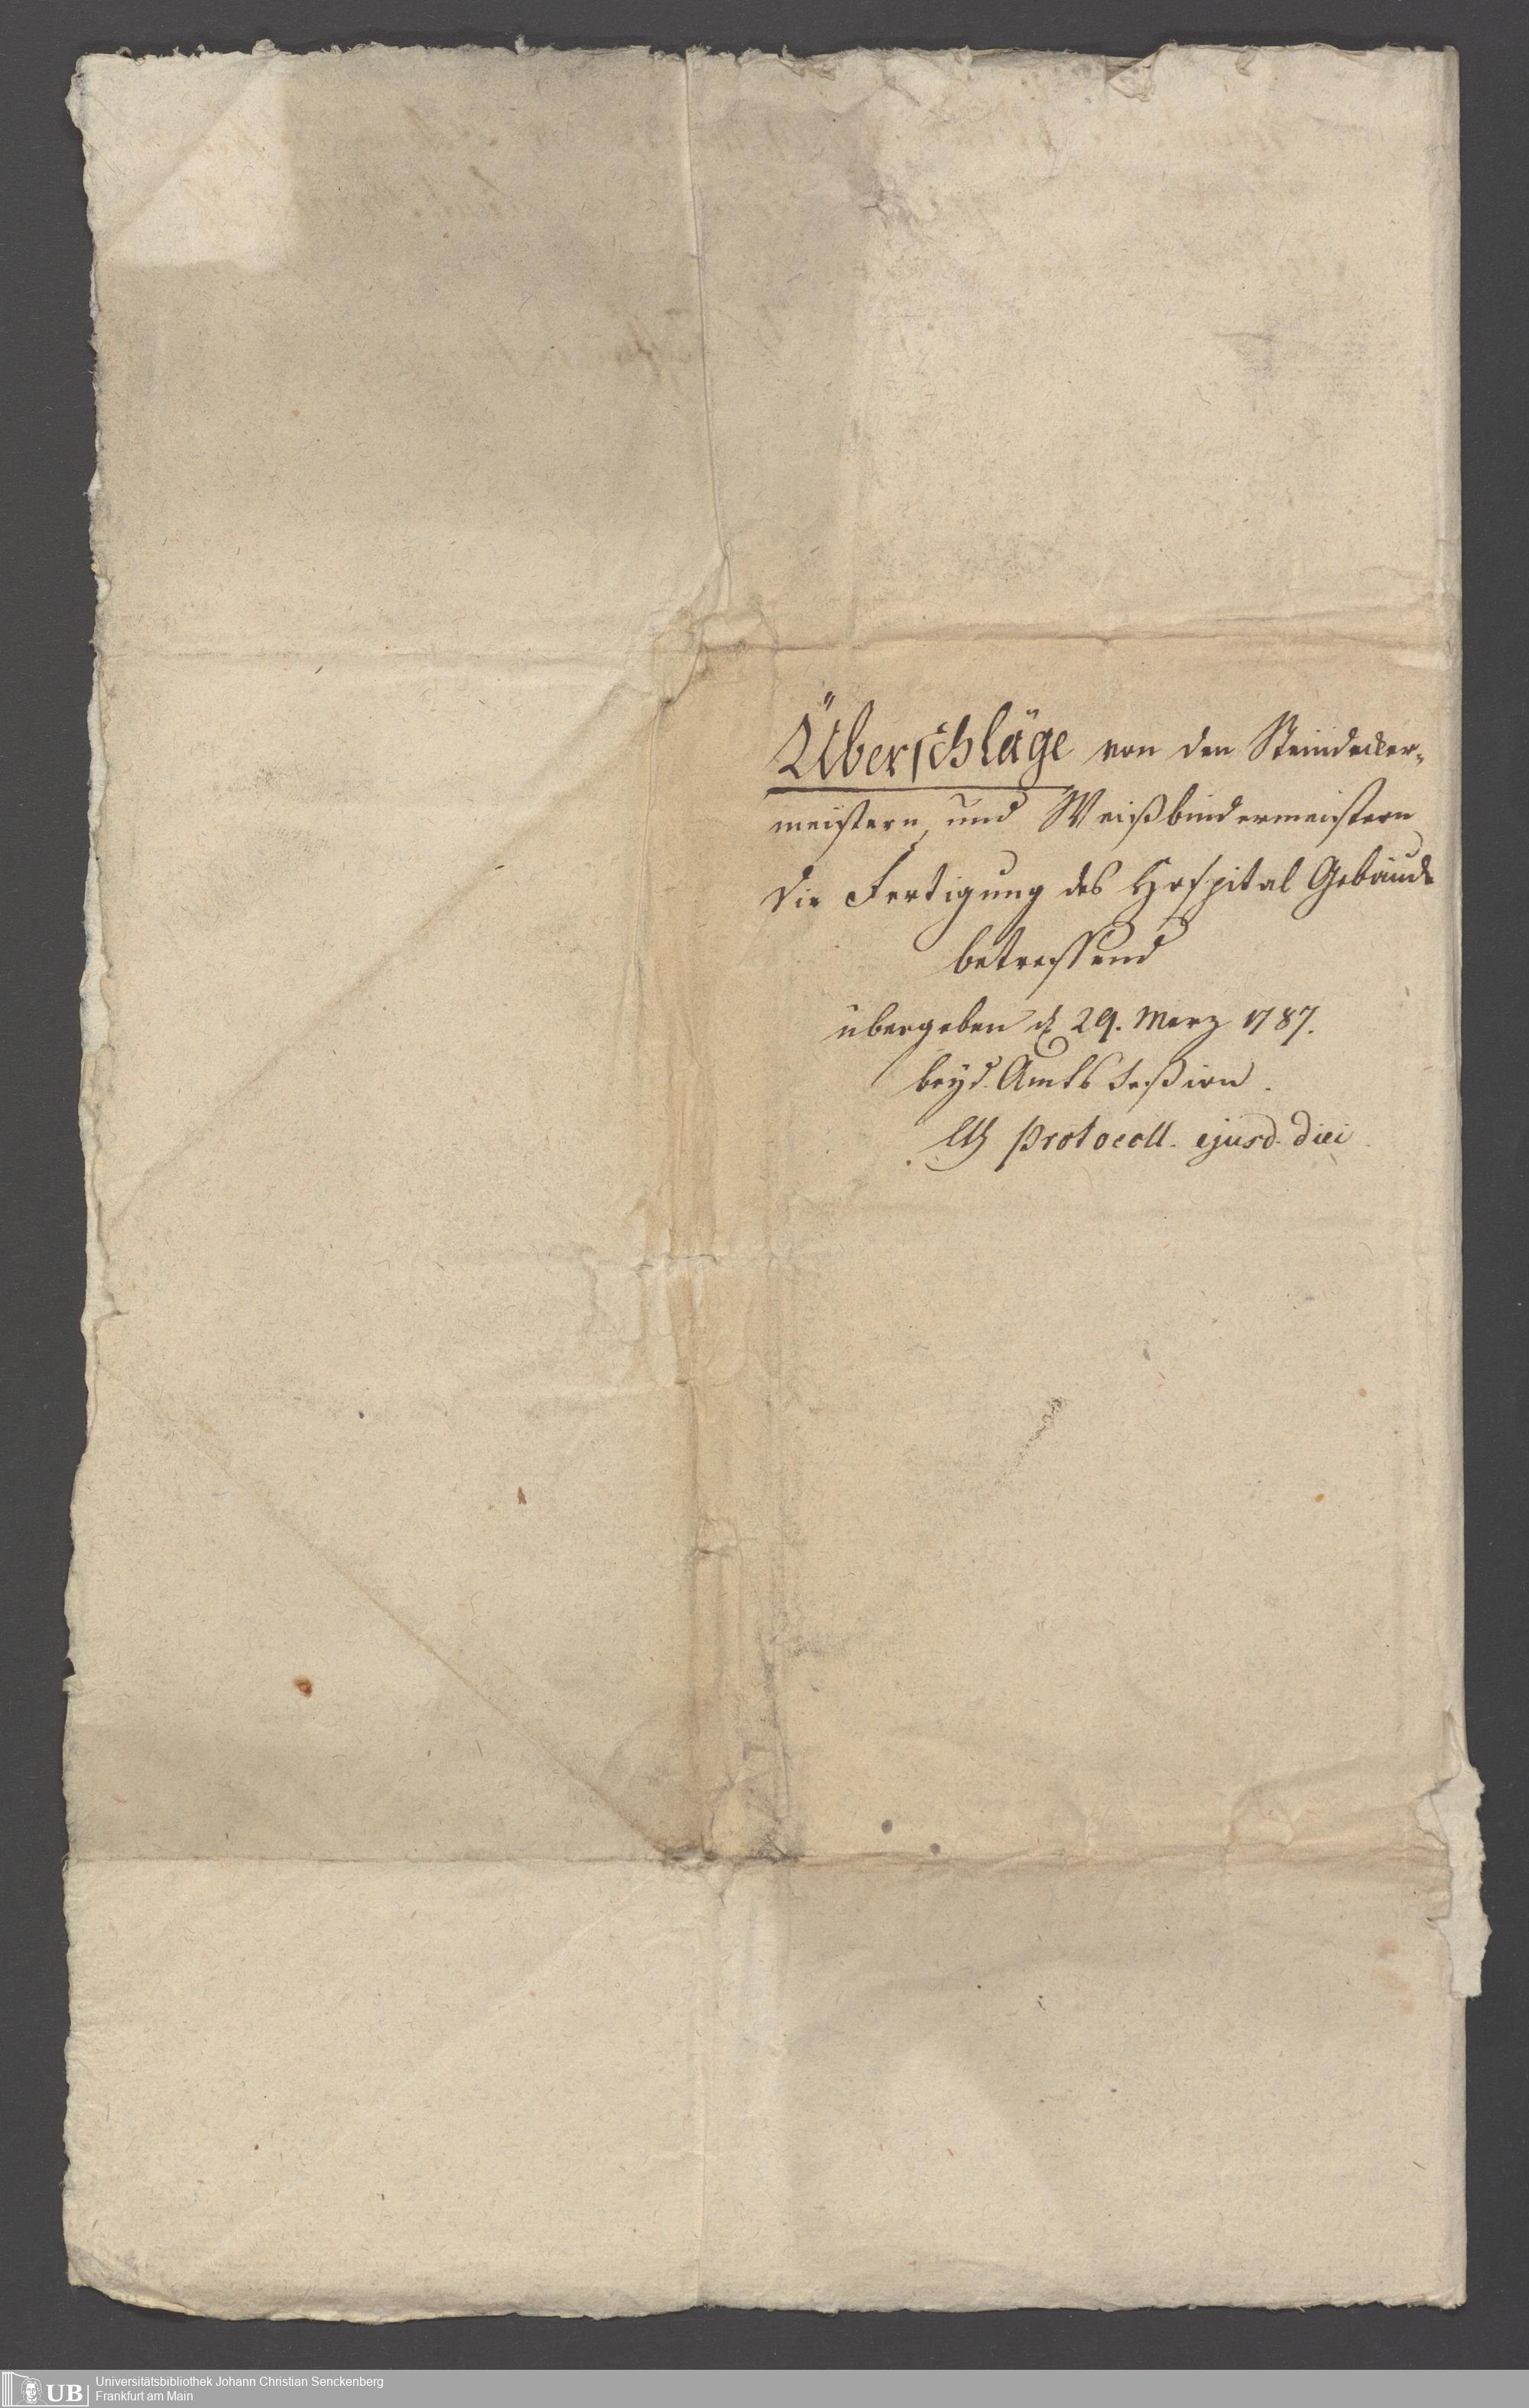 Überschläge von den Steindecker-
meistern, und Weißbindermeistern
die Fertigung des Hospital Gebäude
betreffend
übergeben d. 29. Merz 1787.
beyd. Amts Seßion.
protocoll. ejusd. diei
UB
Universitätsbibliothek Johann Christian Senckenberg
Frankfurt am Main